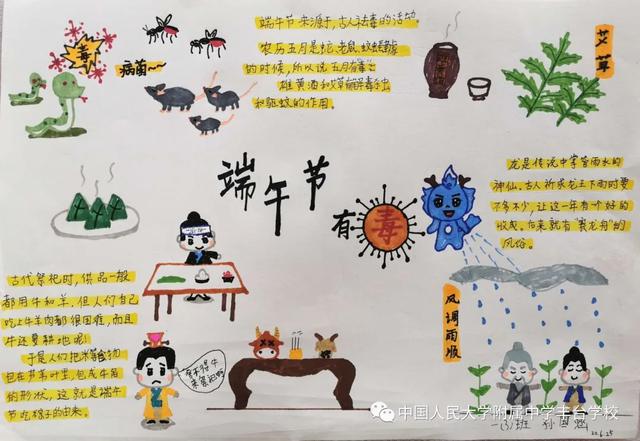 端午节来源于，古人祛毒的活动。
农历五月是蛇、老鼠、蚊蟑螂
的时候，所以说五月有毒
雄黄酒和艾草解毒
和驱蚊的作用。
毒
病菌~~
艾草
端午节
有毒
龙是传说中掌管雨水的
神仙，古人祈求龙王下雨时要
不多不少，让这一年有个好的
收成，后来就有"赛龙舟"的
风俗。
风调雨顺
古代祭祀时，供品一般
都用牛和羊，但人们自己
吃上牛羊肉都很困难，而且
牛还要耕地呢！
于是人们把米等谷物
包在芦苇叶里，包成牛角
的形状，这就是端午
节吃粽子的由来。
舍不得牛
来祭祀啊
中国人民大学附属中学丰台学校
一(3)班
22.6.25